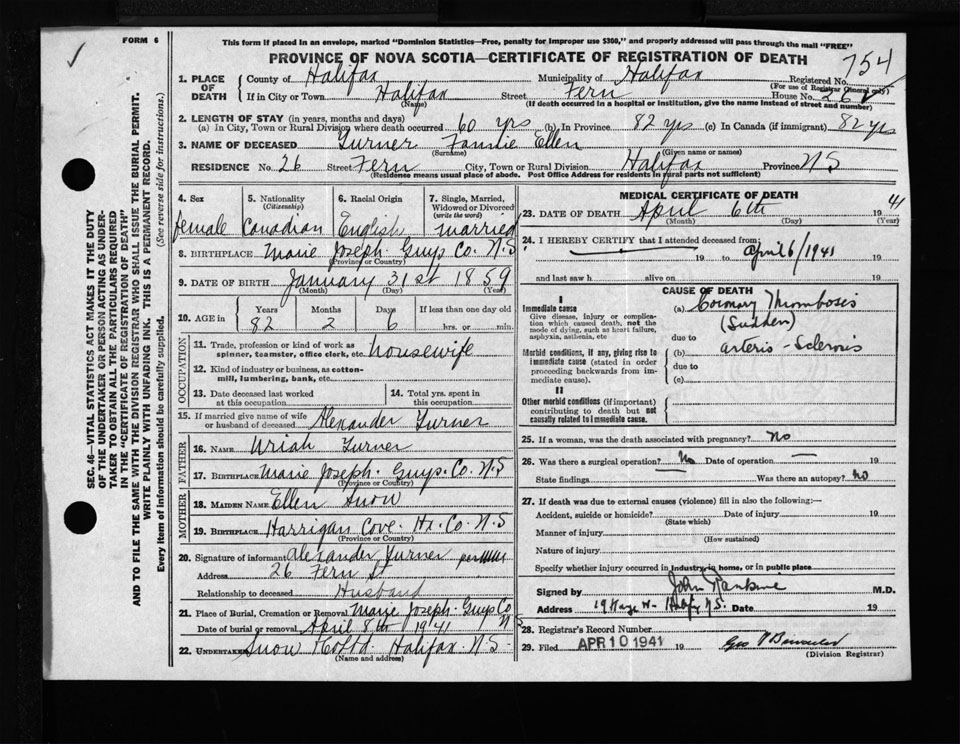 FORM 6
This form if placed in an envelope, marked "Dominion Statistics—Free, penalty for improper use $300," and properly addressed will pass through the mail "FREE"
PROVINCE OF NOVA SCOTIA—CERTIFICATE OF REGISTRATION OF DEATH
754
1. PLACE OF DEATH County of Halifax Municipality of Halifax Registered No.
(For use of Registrar General only)
If in City or Town Halifax Street Fern House No. 26
(Name) (If death occurred in a hospital or institution, give the name instead of street and number)
2. LENGTH OF STAY (in years, months and days)
(a) In City, Town or Rural Division where death occurred 60 yrs (b) In Province 82 yrs (c) In Canada (if immigrant) 82 yrs
3. NAME OF DECEASED Turner Fannie Ellen
(Surname) (Given name or names)
RESIDENCE No. 26 Street Fern City, Town or Rural Division Halifax Province N.S
(Residence means usual place of abode. Post Office Address for residents in rural parts not sufficient)
4. Sex female
5. Nationality (Citizenship) Canadian
6. Racial Origin English
7. Single, Married, Widowed or Divorced (write the word) married
8. BIRTHPLACE Marie Joseph. Guys Co. N.S
(Province or Country)
9. DATE OF BIRTH January 31st 1859
(Month) (Day) (Year)
10. AGE in Years 82 Months 2 Days 6 If less than one day old hrs. or min.
OCCUPATION
11. Trade, profession or kind of work as spinner, teamster, office clerk, etc. housewife
12. Kind of industry or business, as cotton-mill, lumbering, bank, etc.
13. Date deceased last worked at this occupation
14. Total yrs. spent in this occupation
15. If married give name of wife or husband of deceased Alexander Turner
FATHER
16. NAME Uriah Turner
17. BIRTHPLACE Marie Joseph. Guys. Co. N.S
(Province or Country)
MOTHER
18. MAIDEN NAME Ellen Snow
19. BIRTHPLACE Harrigan Cove. Hx. Co. N.S
(Province or Country)
20. Signature of informant Alexander Turner
Address 26 Fern St
Relationship to deceased Husband
21. Place of Burial, Cremation or Removal Marie Joseph. Guys Co N S
Date of burial or removal April 8th 1941
22. UNDERTAKER Snow & Co Ltd. Halifax. N.S
(Name and address)
MEDICAL CERTIFICATE OF DEATH
23. DATE OF DEATH April 6th 1941
(Month) (Day)
24. I HEREBY CERTIFY that I attended deceased from:
19 to April 6/1941
and last saw h alive on 19
CAUSE OF DEATH
I
Immediate cause
Give disease, injury or complication which caused death, not the mode of dying, such as heart failure, asphyxia, asthenia, etc
(a) Coronary Thrombosis
(Sudden)
due to
Morbid conditions, if any, giving rise to immediate cause (stated in order proceeding backwards from immediate cause).
(b) arterio-sclerosis
due to
(c)
II
Other morbid conditions (if important) contributing to death but not causally related to immediate cause.
25. If a woman, was the death associated with pregnancy? No
26. Was there a surgical operation? No Date of operation 19
State findings Was there an autopsy? no
27. If death was due to external causes (violence) fill in also the following:—
Accident, suicide or homicide? Date of injury 19
(State which)
Manner of injury
(How sustained)
Nature of injury
Specify whether injury occurred in industry, in home, or in public place
Signed by John Rankine M.D.
Address Halifx N.S. Date 19
28. Registrar's Record Number
29. Filed APR 10 1941 19
(Division Registrar)
SEC. 46—VITAL STATISTICS ACT MAKES IT THE DUTY
OF THE UNDERTAKER OR PERSON ACTING AS UNDER-
TAKER TO OBTAIN ALL THE PARTICULARS REQUIRED
IN THE "CERTIFICATE OF REGISTRATION OF DEATH"
AND TO FILE THE SAME WITH THE DIVISION REGISTRAR WHO SHALL ISSUE THE BURIAL PERMIT.
WRITE PLAINLY WITH UNFADING INK. THIS IS A PERMANENT RECORD.
Every item of information should be carefully supplied. (See reverse side for instructions.)